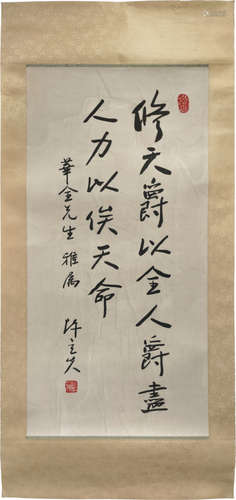 修天爵以全人爵盡
人力以俟天命
華全先生雅屬
陳立夫